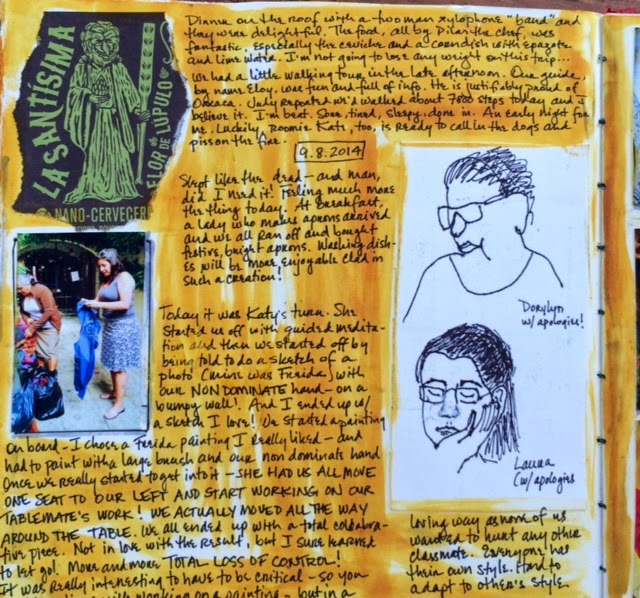 LA SANTÍSIMA
FLOR DE LÚPULO
NANO-CERVECER
Dinner on the roof with a two man xylophone "band" and
they were delightful. The food, all by Pilar the chef, was
fantastic, especially the ceviche and a with epazote
and lime water. I'm not going to lose any weight on this trip...
We had a little walking tour in the late afternoon. Our guide,
by name Eloy, was fun and full of info. He is justifiably proud of
Oaxaca. Judy reported we'd walked about 7800 steps today and I
believe it. I'm beat. Sore, tired, sleepy, done in. An early night for
me. Luckily, Roomie Kate, too, is ready to call in the dogs and
piss on the fire.
9.8.2014
Slept like the dead - and man,
did I need it! Feeling much more
the thing today. At breakfast,
a lady who makes aprons arrived
and we all ran off and bought
festive, bright aprons. Washing dish-
es will be more enjoyable clad in
such a creation!
Today it was Katy's turn. She
started us off with guided medita-
tion and then we started off by
being told to do a sketch of a
photo (mine was Frida) with
our NON DOMINATE hand - on a
bumpy wall! And I ended up w/
a sketch I love! We started a painting
on board - I chose a Frida painting I really liked - and
had to paint with a large brush and our non dominate hand
Once we really started to get into it - SHE HAD US ALL MOVE
ONE SEAT TO OUR LEFT AND START WORKING ON OUR
TABLEMATE'S WORK! WE ACTUALLY MOVED ALL THE WAY
AROUND THE TABLE. We all ended up with a total collabora-
tive piece. Not in love with the result, but I sure learned
to let go! More and more TOTAL LOSS OF CONTROL!
It was really interesting to have to be critical - so you
working on a painting - but in a
Dorylyn
w/ apologies!
Laura
(w/ apologies
loving way as none of us
wanted to hurt any other
classmate. Everyone has
their own style. Hard to
adapt to other's style.